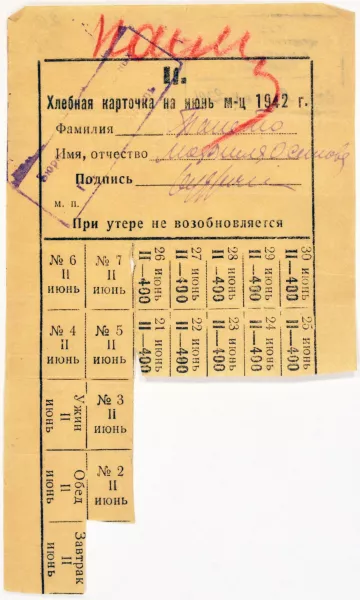 II.
Хлебная карточка на июнь м-ц 1942 г.
Фамилия
Имя, отчество
Подпись
м. п.
При утере не возобновляется
№ 6
II
июнь
№ 7
II
июнь
26 июнь
II—400
27 июнь
II—400
28 июнь
II—400
29 июнь
II—400
30 июнь
II—400
№ 4
II
июнь
№ 5
II
июнь
21 июнь
II—400
22 июнь
II—400
23 июнь
II—400
24 июнь
II—400
25 июнь
II—400
Ужин
II
июнь
№ 3
II
июнь
Обед
II
июнь
№ 2
II
июнь
Завтрак
II
июнь